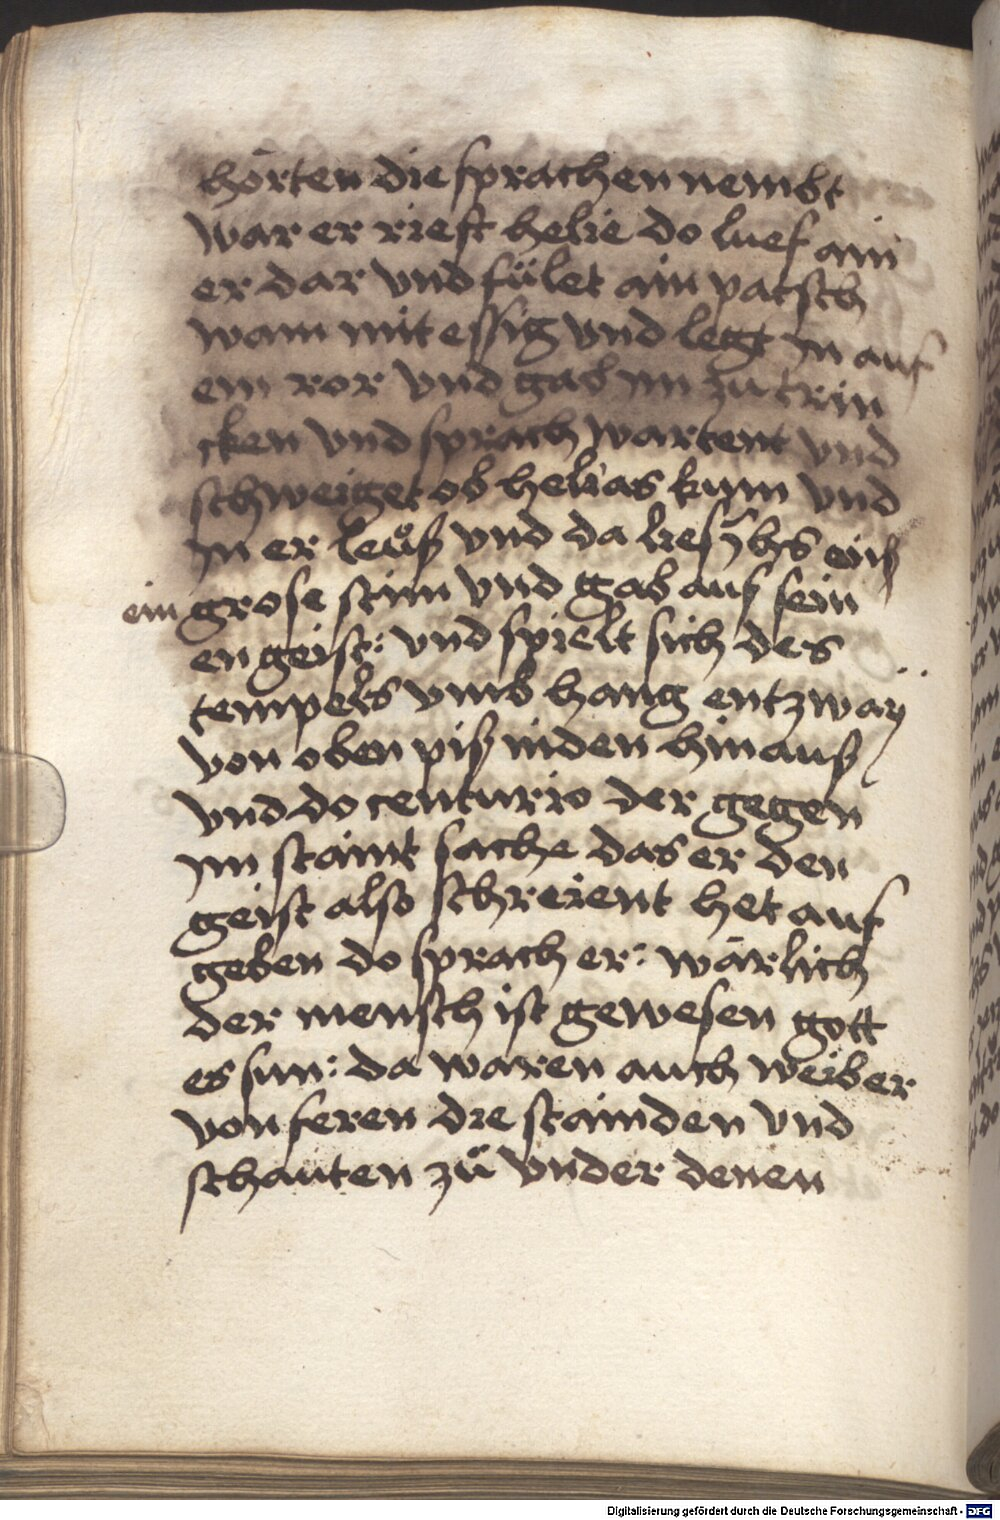 hörten die sprachen nembt
war er rieft helie do luef ain
er dar vnd fület ain patsch
wam mit essig vnd legt jn auf
ein ror vnd gab im zu trin
cken vnd sprach wartent vnd
schweiget ob helias kum vnd
jn er leůß vnd da lies jhs
ein grose stim vnd gab auß sein
en geist: vnd spielt sich des
tempels vmb hang entzwaÿ
von oben piß niden hin auß
vnd do centurio der gegen
jm staint sache das er den
geist also schreient het auf
geben do sprach er: wärlich
der mensch ist gewesen gott
es sun: da waren auch weiber
von feren die stainden vnd
schauten zů vnder denen
Digitalisierung gefördert durch die Deutsche Forschungsgemeinschaft - DFG